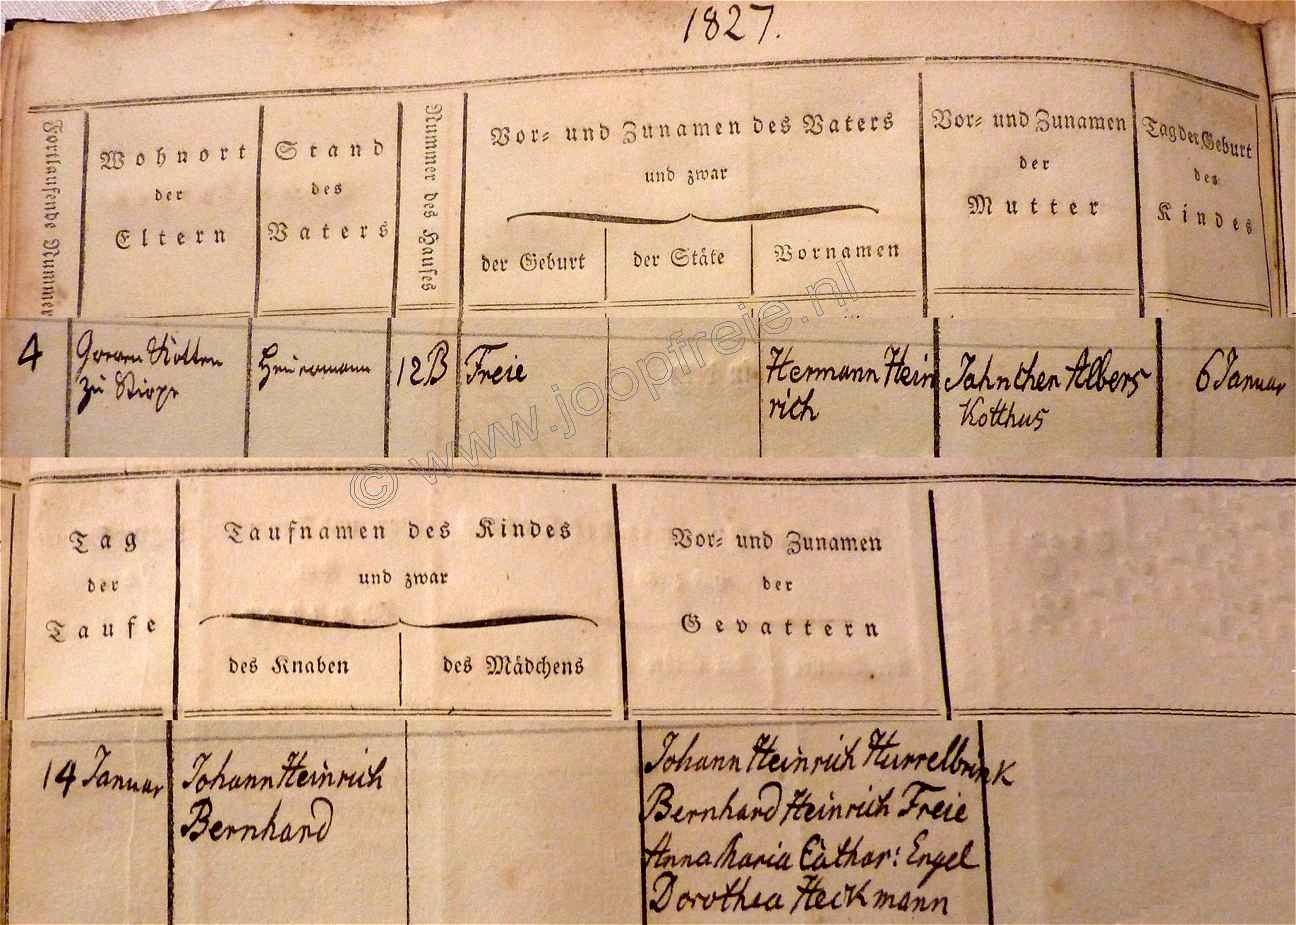 1827.
Fortlaufende Nummer
Wohnort
der
Eltern
Stand
des
Vaters
Nummer des Hauses
Vor- und Zunamen des Vaters
und zwar
der Geburt
der Stäte
Vornamen
Vor- und Zunamen
der
Mutter
Tag der Geburt
des
Kindes
4
Kotten
zu
Heuermann
12B
Freie
Hermann Hein
rich
Jahnchen Albers
Kotthus
6 Januar
© www.joopfreie.nl
Tag
der
Taufe
Taufnamen des Kindes
und zwar
des Knaben
des Mädchens
Vor- und Zunamen
der
Gevattern
14 Januar
Johann Heinrich
Bernhard
Johann Heinrich Hurrelbrink
Bernhard Heinrich Freie
Anna Maria Cathar: Engel
Dorothea Heckmann